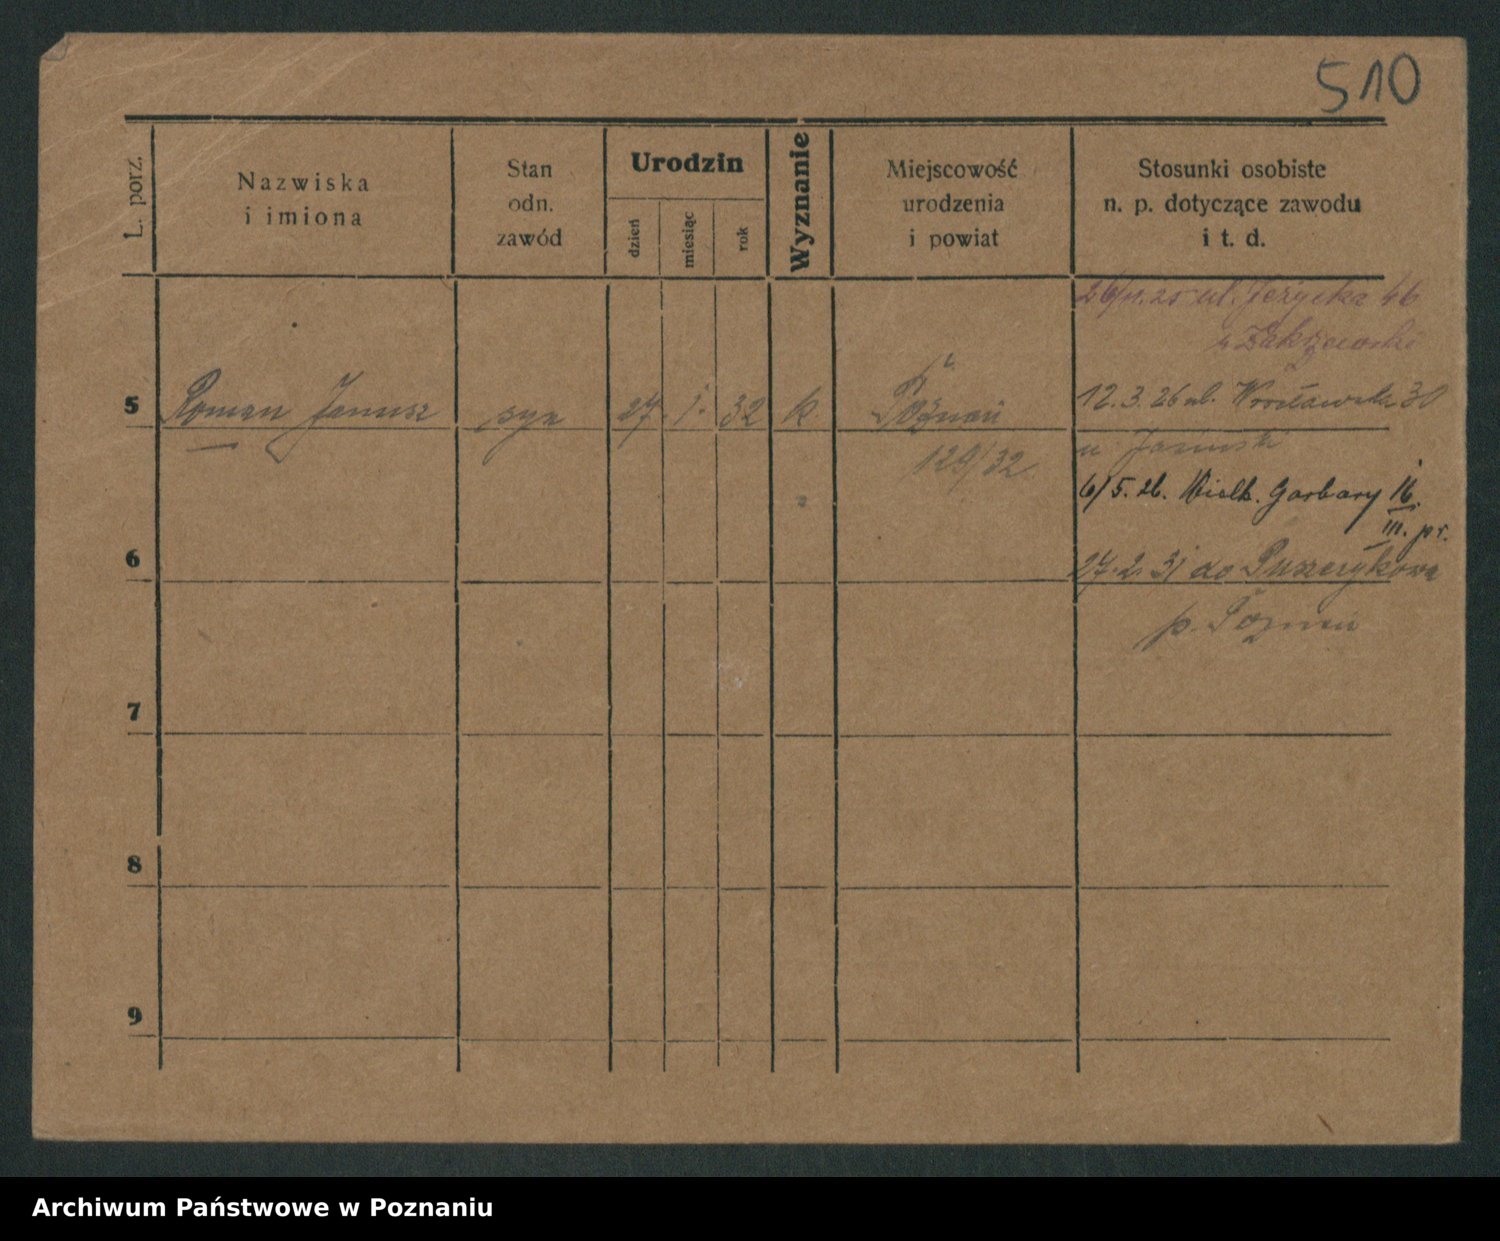 510
L. porz.
Nazwiska
i imiona
Stan
odn.
zawód
Urodzin
dzień
miesiąc
rok
Wyznanie
Miejscowość
urodzenia
i powiat
Stosunki osobiste
n. p. dotyczące zawodu
i t. d.
26/11.25 ul. Jeżycka 46
u Zakrzewski
5 Roman Janusz syn 27. 1. 32 k. Poznań
129/32
12.3.26 ul. Wrocławska 30
u
6/5.26. Wielk. Garbary 16.
III. pr.
27.2.31 do Puszczykowa
p. Poznań
6
7
8
9
Archiwum Państwowe w Poznaniu